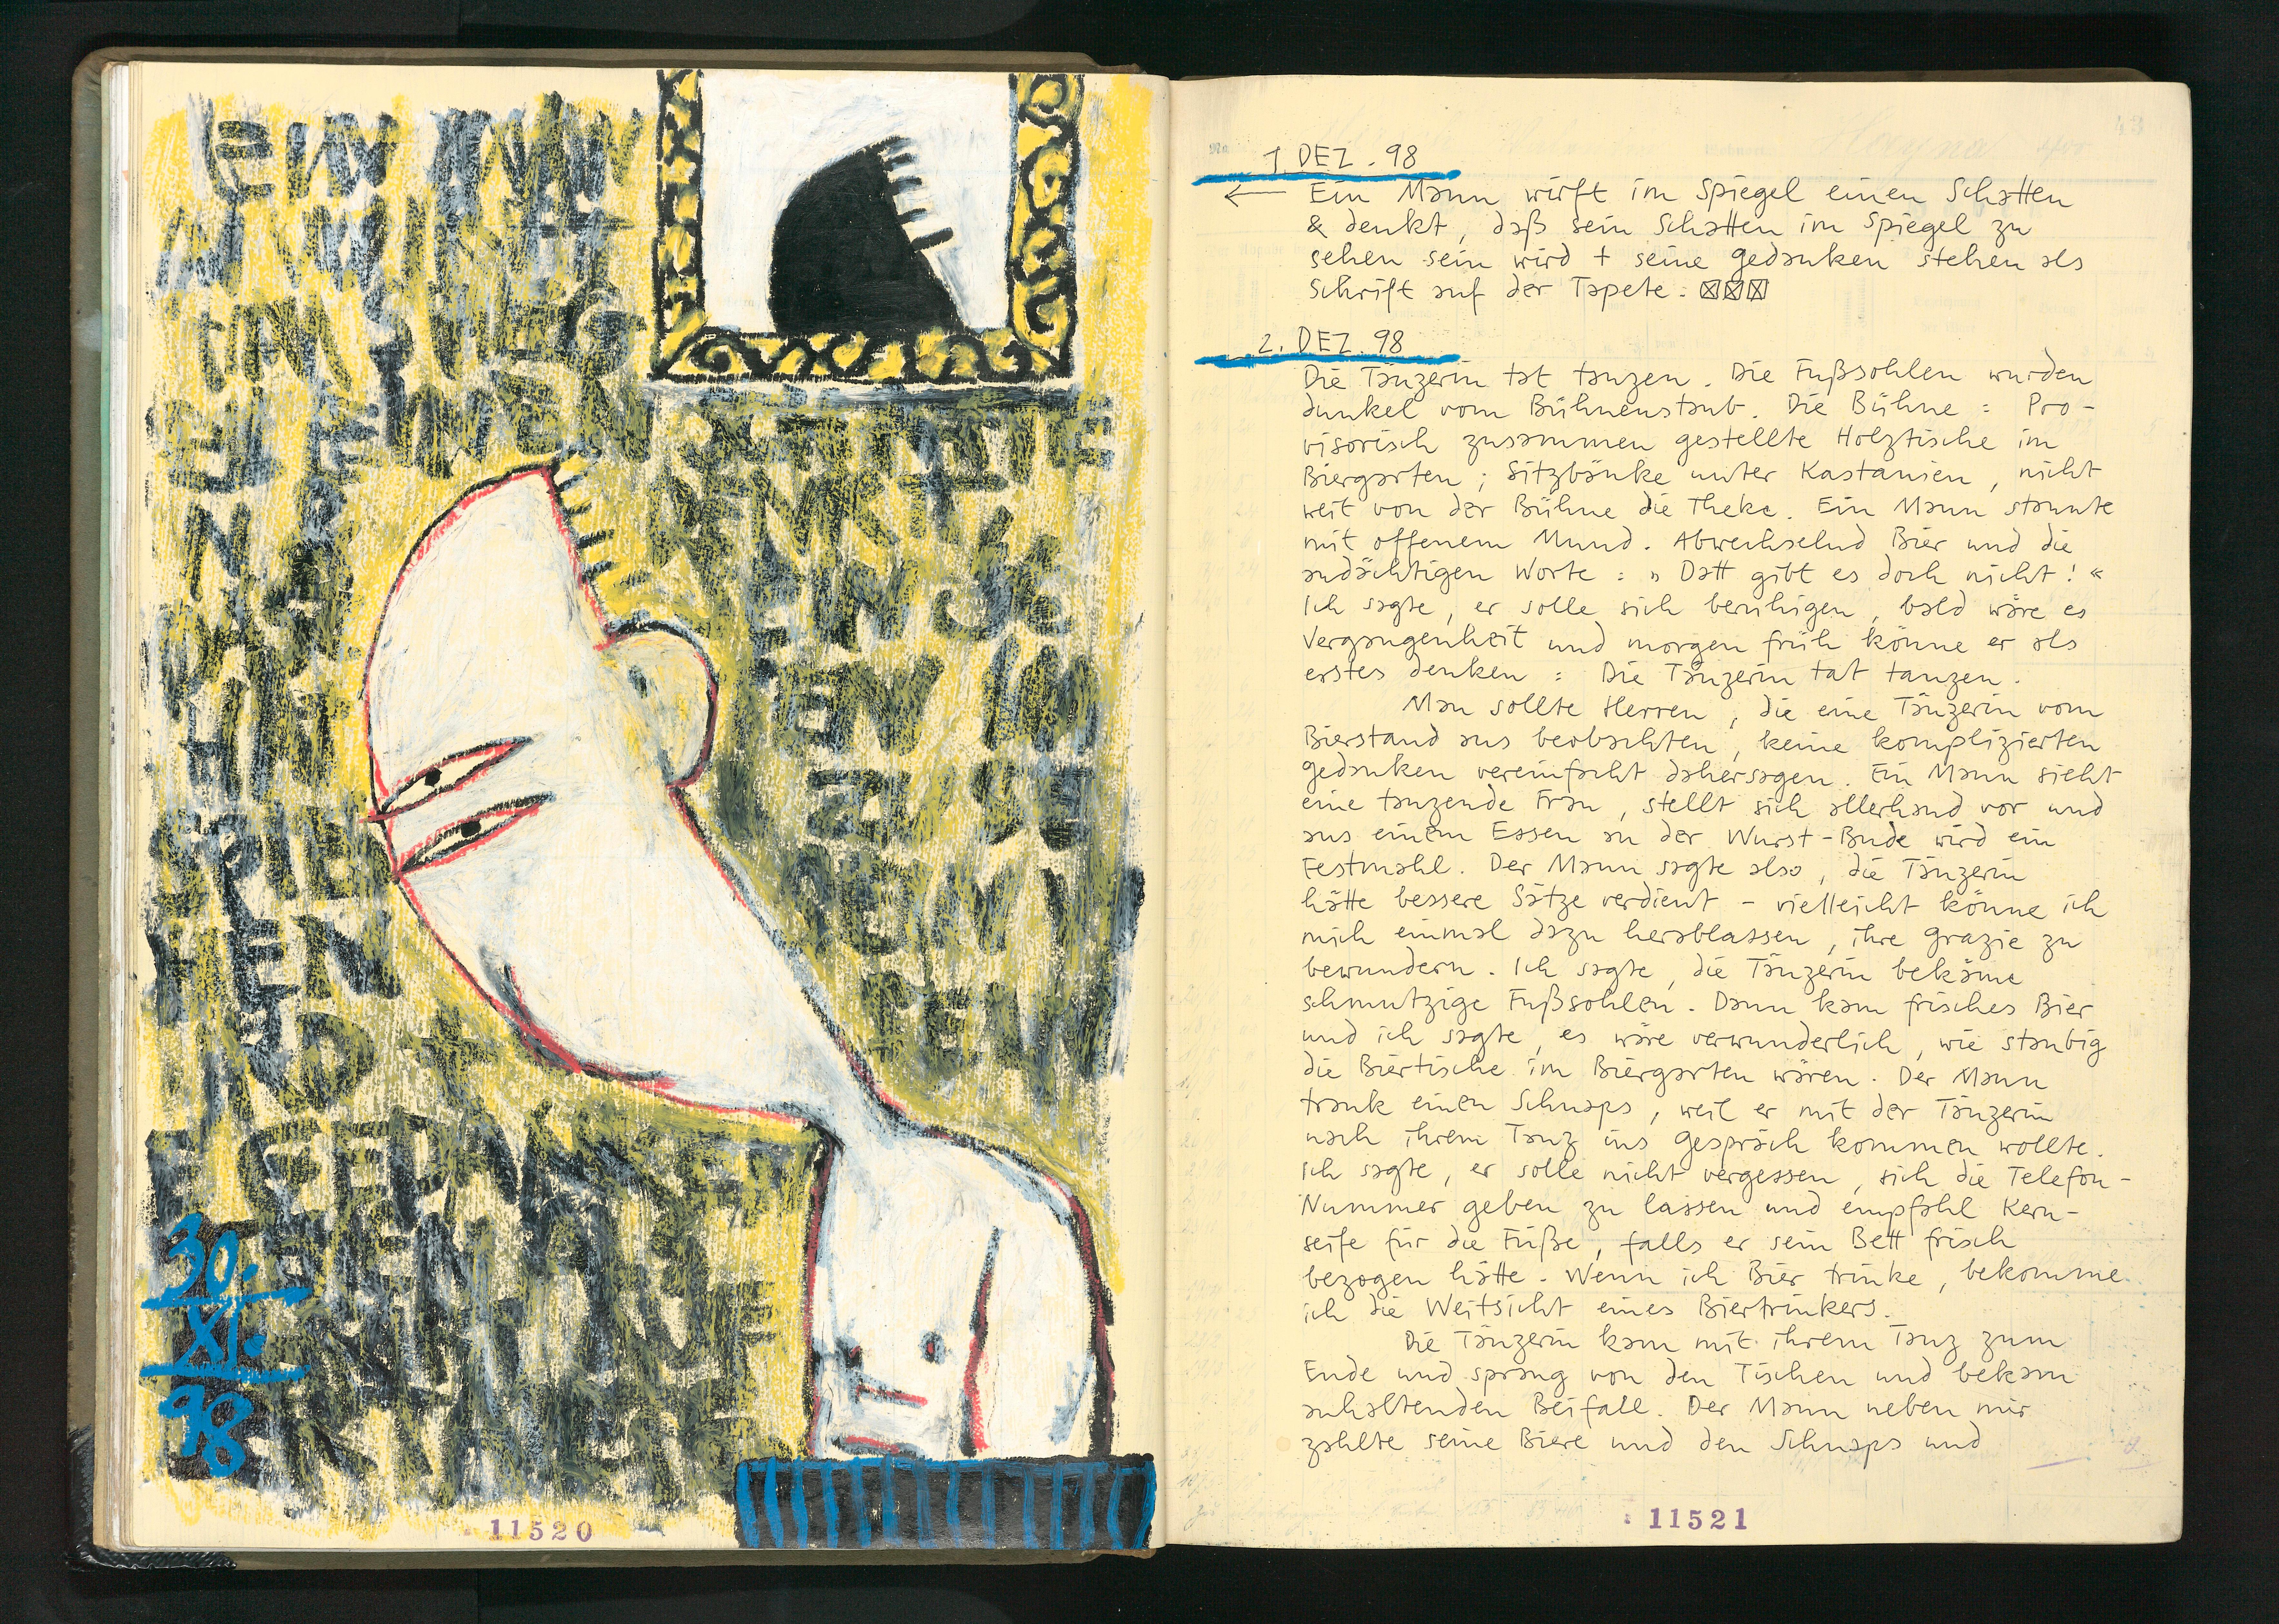 EIN MAN
N WIRFT
IM SPIEG
EL EINEN SCHATTE
N & DENKT
SPIE
HEN
GEDANK
30.
XI.
98
11520
1. DEZ. 98
← Ein Mann wirft im Spiegel einen Schatten
& denkt, daß sein Schatten im Spiegel zu
sehen sein wird + seine Gedanken stehen als
Schrift auf der Tapete. ☒☒☒
2. DEZ. 98
Die Tänzerin tat tanzen. Die Fußsohlen wurden
dunkel vom Bühnenstaub. Die Bühne: Pro-
visorisch zusammen gestellte Holztische im
Biergarten; Sitzbänke unter Kastanien, nicht
weit von der Bühne die Theke. Ein Mann staunte
mit offenem Mund. Abwechselnd Bier und die
andächtigen Worte: „Datt gibt es doch nicht!“
Ich sagte, er solle sich beruhigen, bald wäre es
Vergangenheit und morgen früh könne er als
erstes denken: Die Tänzerin tat tanzen.
Man sollte Herren, die eine Tänzerin vom
Bierstand aus beobachten, keine komplizierten
Gedanken vereinfacht dahersagen. Ein Mann sieht
eine tanzende Frau, stellt sich allerhand vor und
aus einem Essen an der Wurst-Bude wird ein
Festmahl. Der Mann sagte also, die Tänzerin
hätte bessere Sätze verdient - vielleicht könne ich
mich einmal dazu herablassen, ihre Grazie zu
bewundern. Ich sagte, die Tänzerin bekäme
schmutzige Fußsohlen. Dann kam frisches Bier
und ich sagte, es wäre verwunderlich, wie staubig
die Biertische im Biergarten wären. Der Mann
trank einen Schnaps, weil er mit der Tänzerin
nach ihrem Tanz ins Gespräch kommen wollte.
Ich sagte, er solle nicht vergessen, sich die Telefon-
Nummer geben zu lassen und empfahl Kern-
seife für die Füße, falls er sein Bett frisch
bezogen hätte. Wenn ich Bier trinke, bekomme
ich die Weitsicht eines Biertrinkers.
Die Tänzerin kam mit ihrem Tanz zum
Ende und sprang von den Tischen und bekam
anhaltenden Beifall. Der Mann neben mir
zahlte seine Biere und den Schnaps und
11521